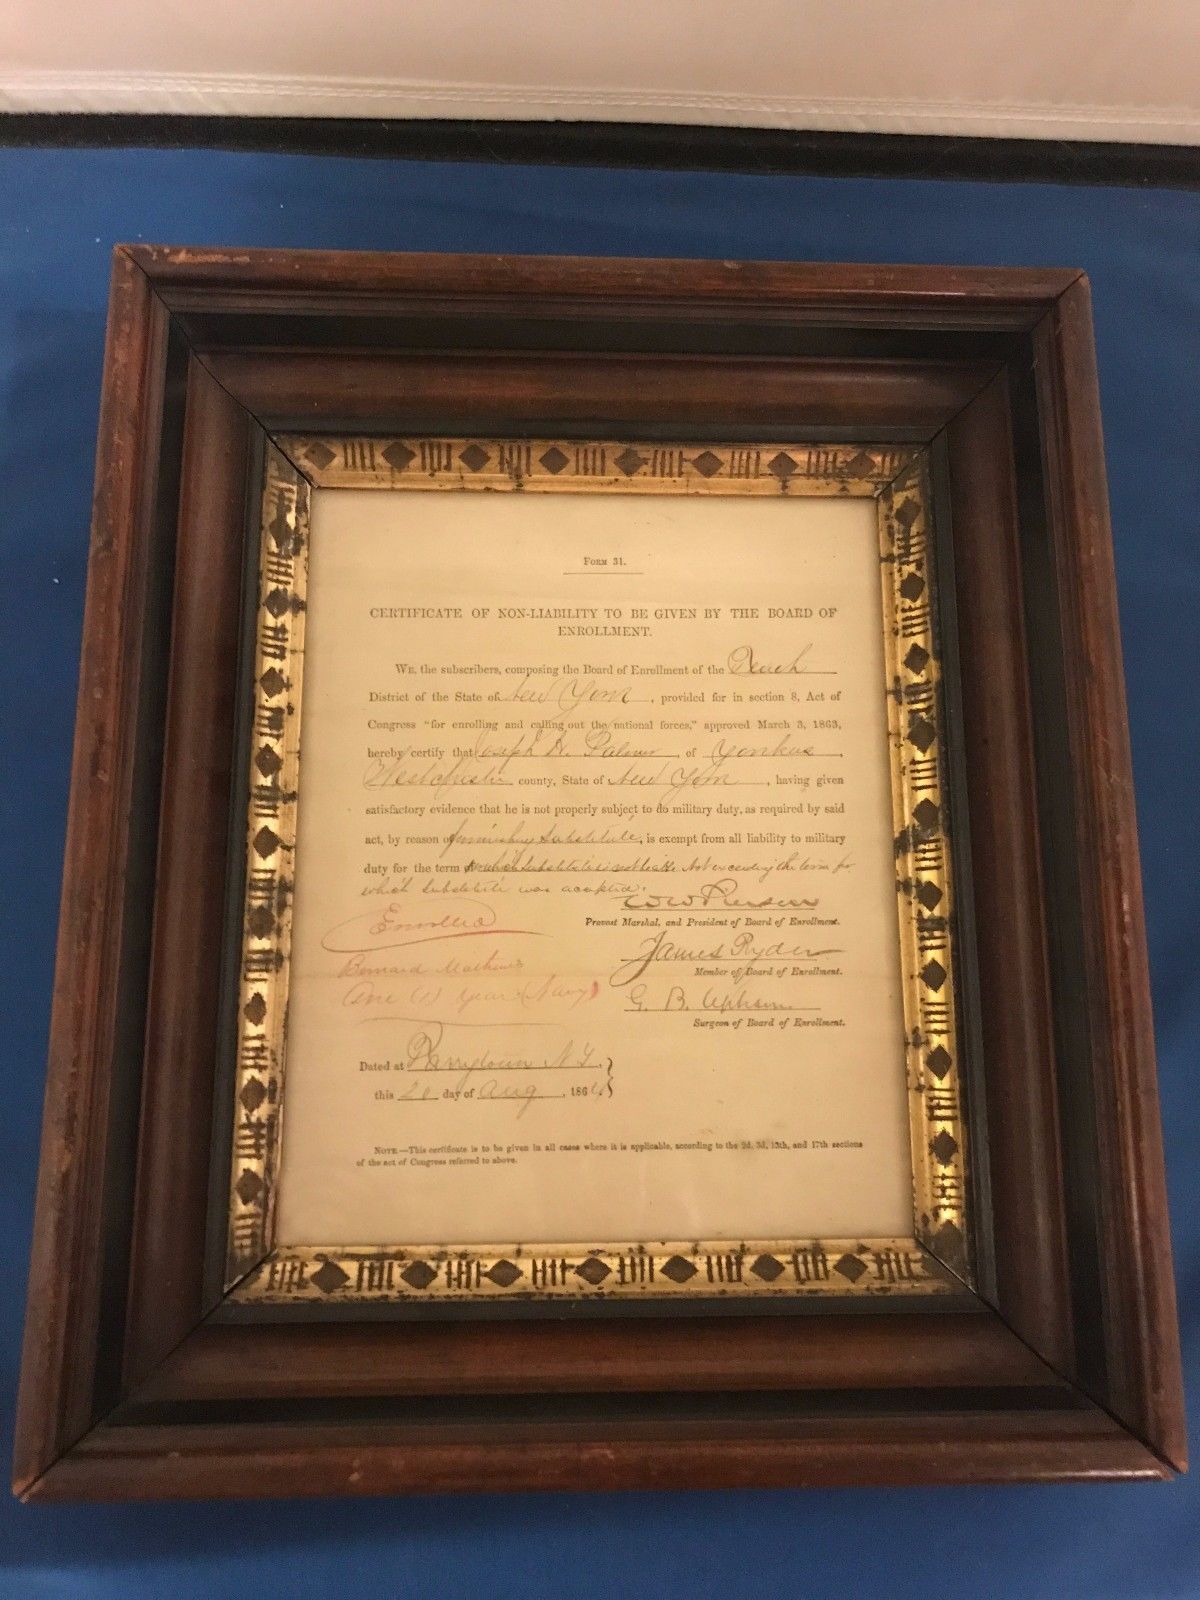 FORM 31.
CERTIFICATE OF NON-LIABILITY TO BE GIVEN BY THE BOARD OF
ENROLLMENT.
WE, the subscribers, composing the Board of Enrollment of the
District of the State of New York, provided for in section 8, Act of
Congress "for enrolling and calling out the national forces," approved March 3, 1863,
hereby certify that Joseph H. Palmer, of Yonkers,
Westchester county, State of New York, having given
satisfactory evidence that he is not properly subject to do military duty, as required by said
act, by reason of furnishing substitute, is exempt from all liability to military
duty for the term not exceeding the term for
which substitute was accepted.
Provost Marshal, and President of Board of Enrollment.
Enrolled
James Ryder
Member of Board of Enrollment.
Bernard Mathews
One (1) Year (Navy)
G. B. Upham
Surgeon of Board of Enrollment.
Dated at Tarrytown N.Y.
this 20 day of Aug, 1864.
NOTE.—This certificate is to be given in all cases where it is applicable, according to the 2d, 3d, 13th, and 17th sections
of the act of Congress referred to above.